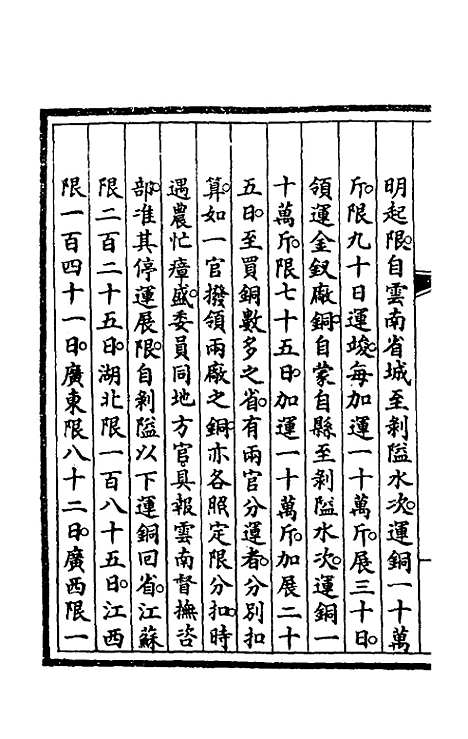 明起限。自雲南省城至剥隘水次。運銅一十萬
斤。限九十日運竣。每加運一十萬斤。展三十日。
領運金釵廠銅。自蒙自縣至剥隘水次。運銅一
十萬斤。限七十五日。加運一十萬斤。加展二十
五日。至買銅數多之省。有兩官分運者。分別扣
算。如一官撥領兩廠之銅。亦各照定限分扣。時
遇農忙瘴盛。委員同地方官。具報雲南督撫咨
部。准其停運展限。自剥隘以下運銅回省。江蘇
限二百二十五日。湖北限一百八十五日。江西
限一百四十一日。廣東限八十二日。廣西限一